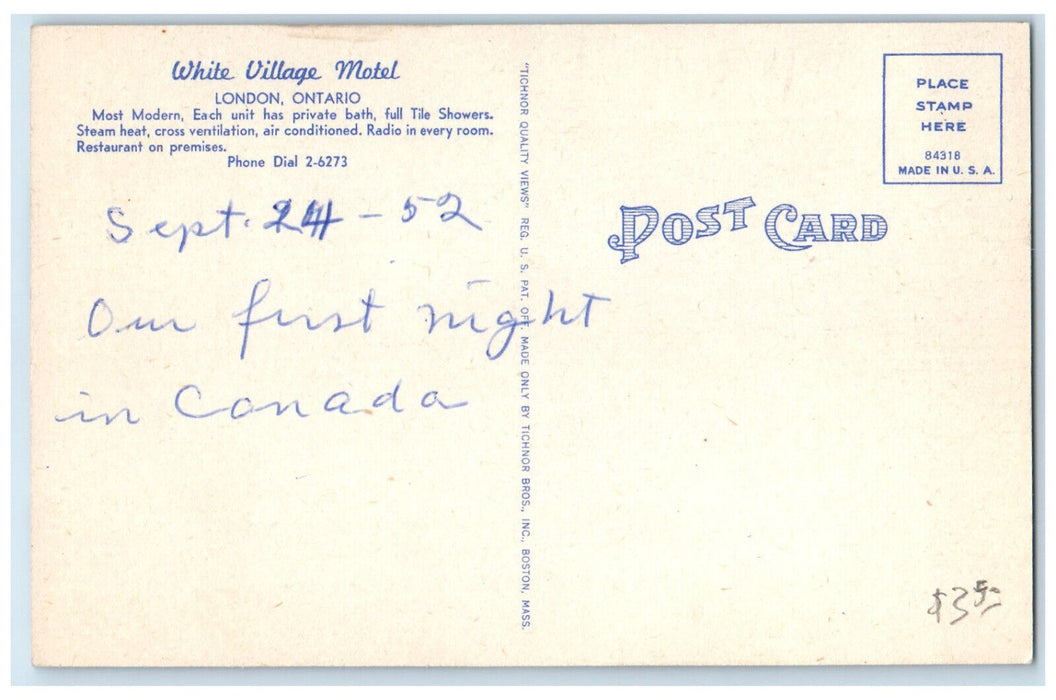 White Village Motel
LONDON, ONTARIO
Most Modern, Each unit has private bath, full Tile Showers.
Steam heat, cross ventilation, air conditioned. Radio in every room.
Restaurant on premises.
Phone Dial 2-6273
Sept. 24 - 52
Our first night
in Canada
"TICHNOR QUALITY VIEWS" REG. U. S. PAT. OFF. MADE ONLY BY TICHNOR BROS., INC., BOSTON, MASS.
POST CARD
PLACE
STAMP
HERE
84318
MADE IN U. S. A.
$3.50